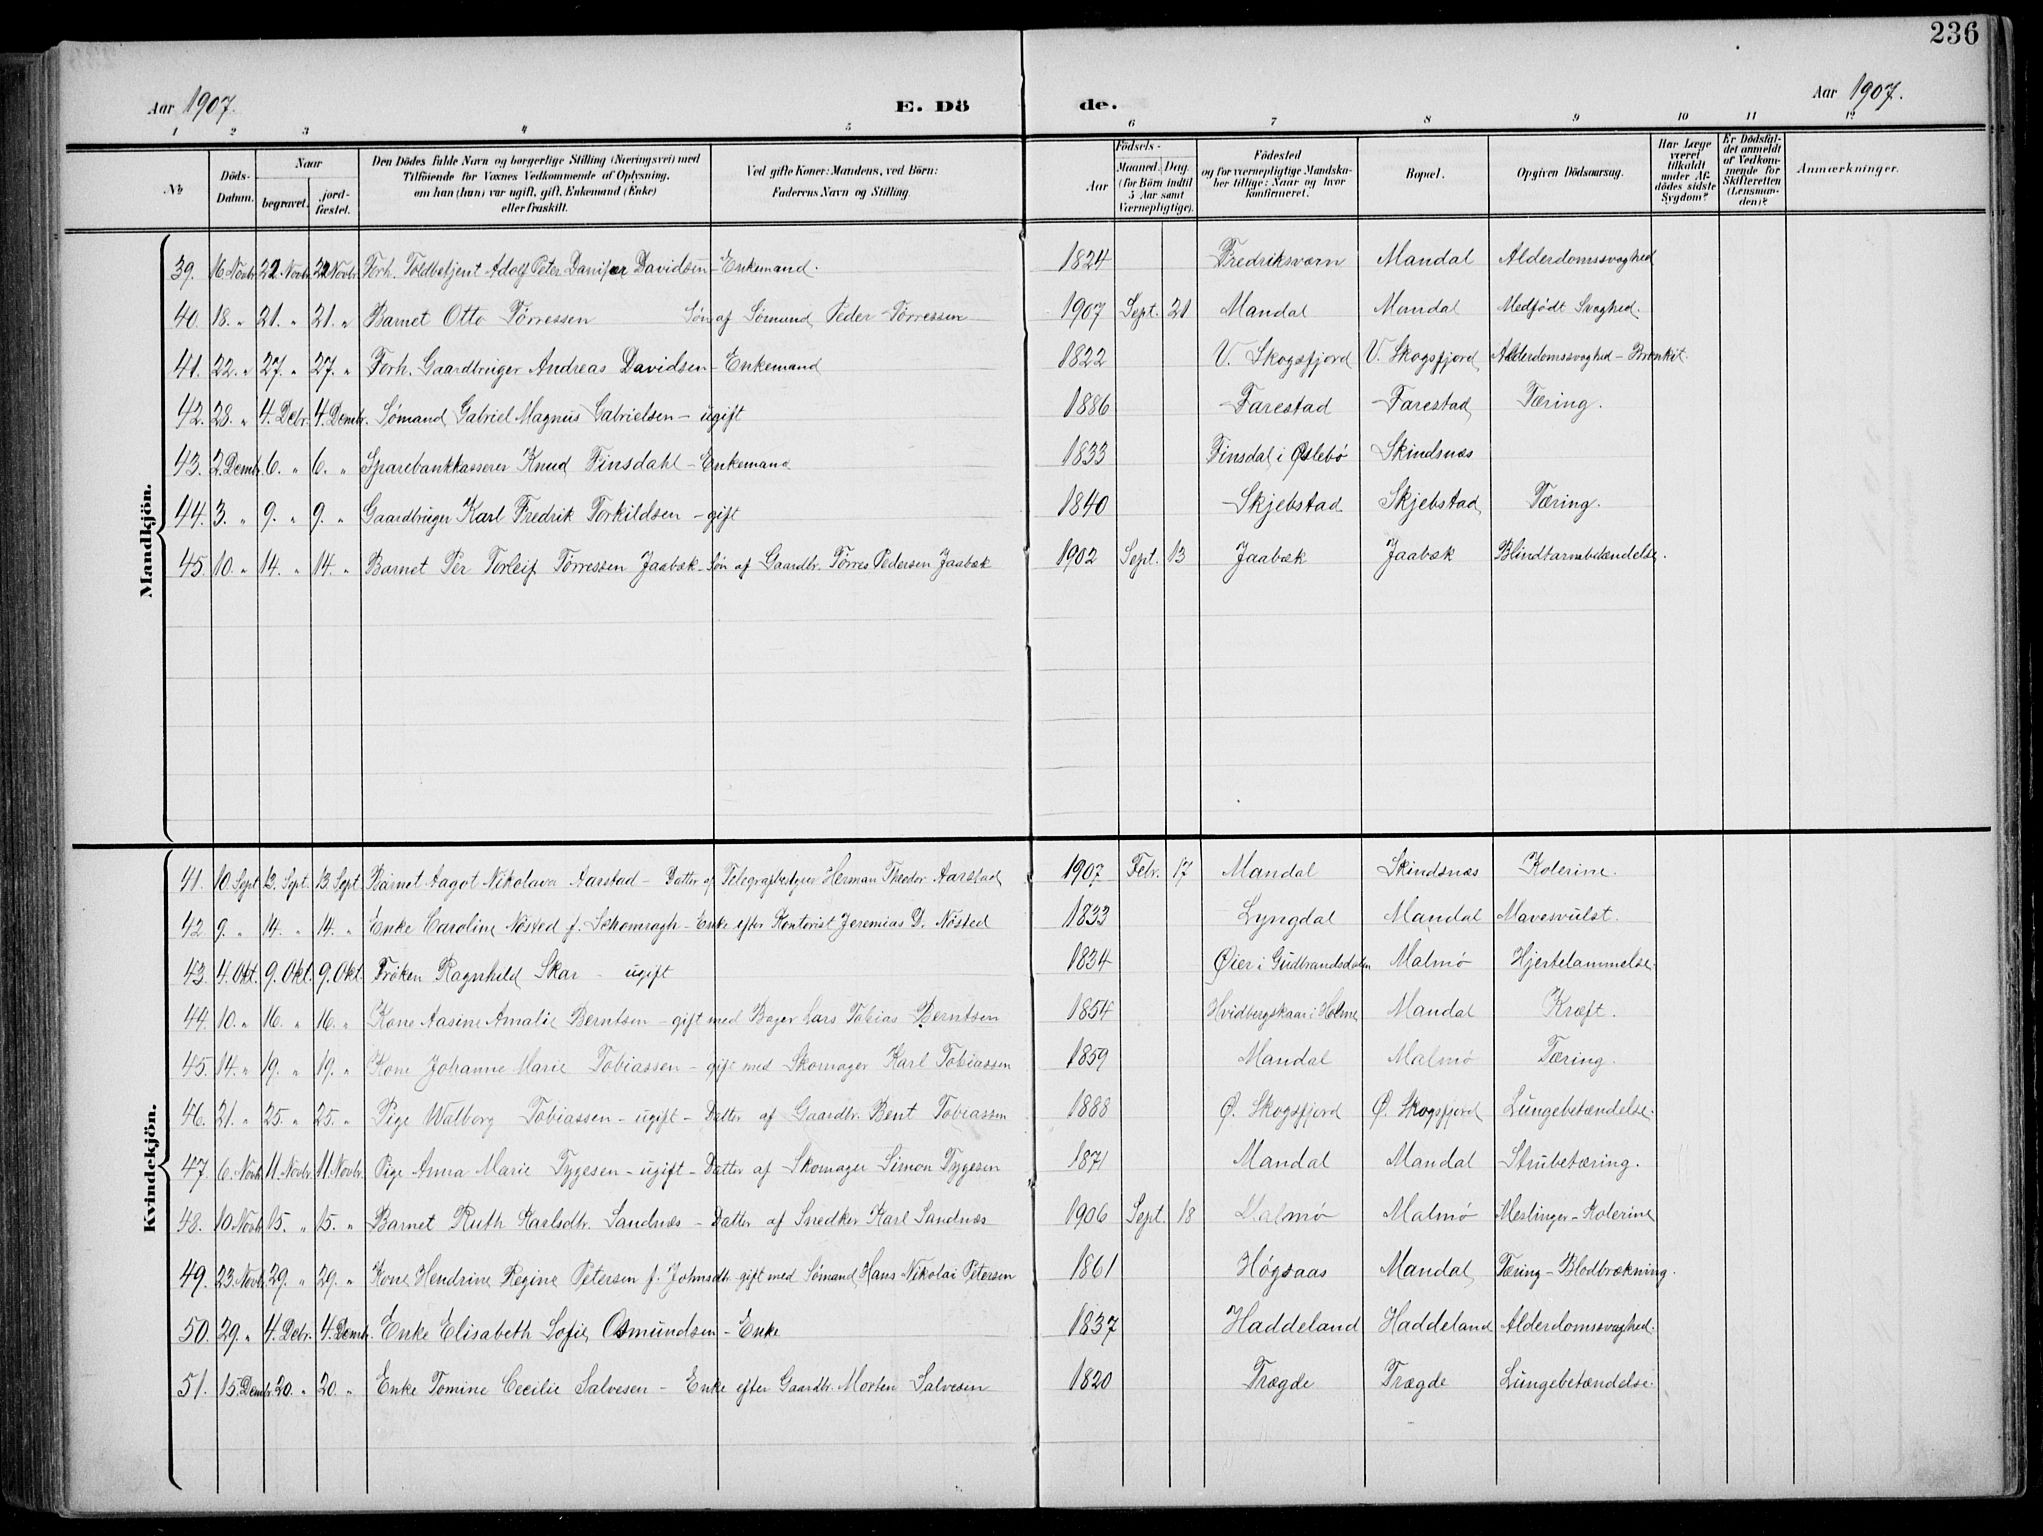 236
Aar 1907.
E. Dö de.
Aar 1907.
1 2 3 4 5 6 7 8 9 10 11 12
No
Döds-Datum.
Naar
begravet.
jord-fæstet.
Den Dödes fulde Navn og borgerlige Stilling (Næringsvei) med
Tilföiende for Voxnes Vedkommende af Oplysning,
om han (hun) var ugift, gift, Enkemand (Enke)
eller fraskilt.
Ved gifte Koner: Mandens, ved Börn:
Faderens Navn og Stilling.
Födsels-
Aar
Maaned. Dag.
(for Börn indtil
5 Aar samt
Værnepligtige).
Födested
og for værnepligtige Mandska-
ber tillige: Naar og hvor
konfirmeret.
Bopæl.
Opgiven Dödsaarsag.
Har Læge
været
tilkaldt
under Af-
dödes sidste
Sygdom?
Er Dödsfal-
det anmeldt
af Vedkom-
mende for
Skifteretten
(Lensman-
den)?
Anmærkninger.
Mandkjön.
39. 16 Novbr. 22. Novbr. 22 Novbr. Forh. Toldbetjent Adolf Peter Davidsen - Enkemand. 1824 Fredriksværn Mandal Alderdomssvaghed
40. 18. " 21. " 21. " Barnet Otto Tørressen Søn af Sømand Peder Tørressen 1907 Sept. 21 Mandal Mandal Medfødt Svaghed.
41. 22. " 27. " 27. " Forh. Gaardbruger Andreas Davidsen - Enkemand 1822 V. Skogsfjord V. Skogsfjord Alderdomssvaghed - Bronkit.
42. 28. " 4. Debr. 4. Dembr. Sømand Gabriel Magnus Gabrielsen - ugift 1886 Farestad Farestad Tæring.
43. 2. Dembr. 6. " 6. " Sparebankkasserer Knud Finsdahl - Enkemand 1833 Finsdal i Øslebø Skindsnæs
44. 3. " 9. " 9. " Gaardbruger Karl Fredrik Torkildsen - gift 1840 Skjebstad Skjebstad Tæring.
45. 10. " 14. " 14. " Barnet Per Torleif Tørressen Jaabæk - Søn af Gaardbr. Tørres Pedersen Jaabæk 1902 Sept. 13 Jaabæk Jaabæk Blindtarmbetændelse.
Kvindekjön.
41. 10 Sept. 13. Sept. 13 Sept. Barnet Aagot Nikolava Aarstad - Datter af Telegrafbestyrer Herman Theodor Aarstad 1907 Febr. 17 Mandal Skindsnæs Kolerine.
42 9. " 14. " 14. " Enke Caroline Nøsted f. Schomragh - Enke efter Kontorist Jeremias D. Nøsted 1833 Lyngdal Mandal Mavesvulst.
43. 4. Okt. 9. Okt. 9. Okt. Frøken Ragnhild Skar - ugift 1834 Øier i Gudbrandsdalen Malmø Hjertelammelse.
44. 10. " 16. " 16. " Kone Aasine Amalie Berntsen - gift med Bager Lars Tobias Berntsen 1854 Hvidbergskaar i Holme Mandal Kræft.
45. 14. " 19. " 19. " Kone Johanne Marie Tobiassen - gift med Skomager Karl Tobiassen 1859 Mandal Malmø Tæring.
46. 21. " 25. " 25. " Pige Walborg Tobiassen - ugift - Datter af Gaardbr. Bent Tobiassen 1888 Ø. Skogsfjord Ø. Skogsfjord Lungebetændelse.
47. 6. Novbr. 11. Novbr. 11. Novbr. Pige Anna Marie Tygesen - ugift - Datter af Skomager Simon Tygesen 1871 Mandal Mandal Strubetæring.
48. 10. Novbr. 15. " 15. " Barnet Ruth Karlsdtr. Sandnæs - Datter af Snedker Karl Sandnæs 1906 Sept. 18 Malmø Malmø Meslinger - Kolerine
49. 23. Novbr. 29. " 29. " Kone Hendrine Regine Petersen f. Johnsdtr. gift med Sømand Hans Nikolai Petersen 1861 Høgsaas Mandal Tæring - Blodbrækning.
50. 29. " 4. Debr. 4. Dembr. Enke Elisabeth Sofie Osmundsen - Enke 1837 Haddeland Haddeland Alderdomssvaghed.
51. 15. Dembr. 20. " 20. " Enke Tomine Cecilie Salvesen - Enke efter Gaardbr. Morten Salvesen 1820 Trægde Trægde Lungebetændelse.